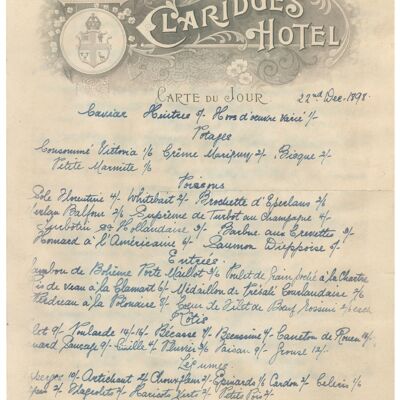 CLARIDGES
HOTEL
CARTE DU JOUR
22nd Dec. 1898.
Caviar Huitres 5/- Hors d'oeuvre varié 1/-
Potages
Consommé Victoria 1/6 Crême Marigny 2/- Bisque 2/-
Petite Marmite 1/6
Poissons
Sole Florentine 4/- Whitebait 2/- Brochette d'Eperlans 2/6
Merlan Balfour 2/6 Suprême de Turbot au Champagne 4/-
Turbotin Hollandaise Barbue aux Crevettes
Homard à l'Américaine Saumon Dieppoise
Entrée
Jambon de Bohême Porte Maillot 3/6 Poulet de grain à la Chartre
Ris de veau à la Clamart 6/- Médaillon de Courlandaise
Perdreau à la Polonaise Coeur de Filet de Boeuf Rossini
Rôtis
Poularde Bécasse 7/- Bécassine Caneton de Rouen
Sauvage Caille Pluvier Faisan Grouse 12/-
Légumes
Asperges Artichaut 2/- Epinards Cardon 2/- Céleris
Flageolets Haricots Verts Petits Pois